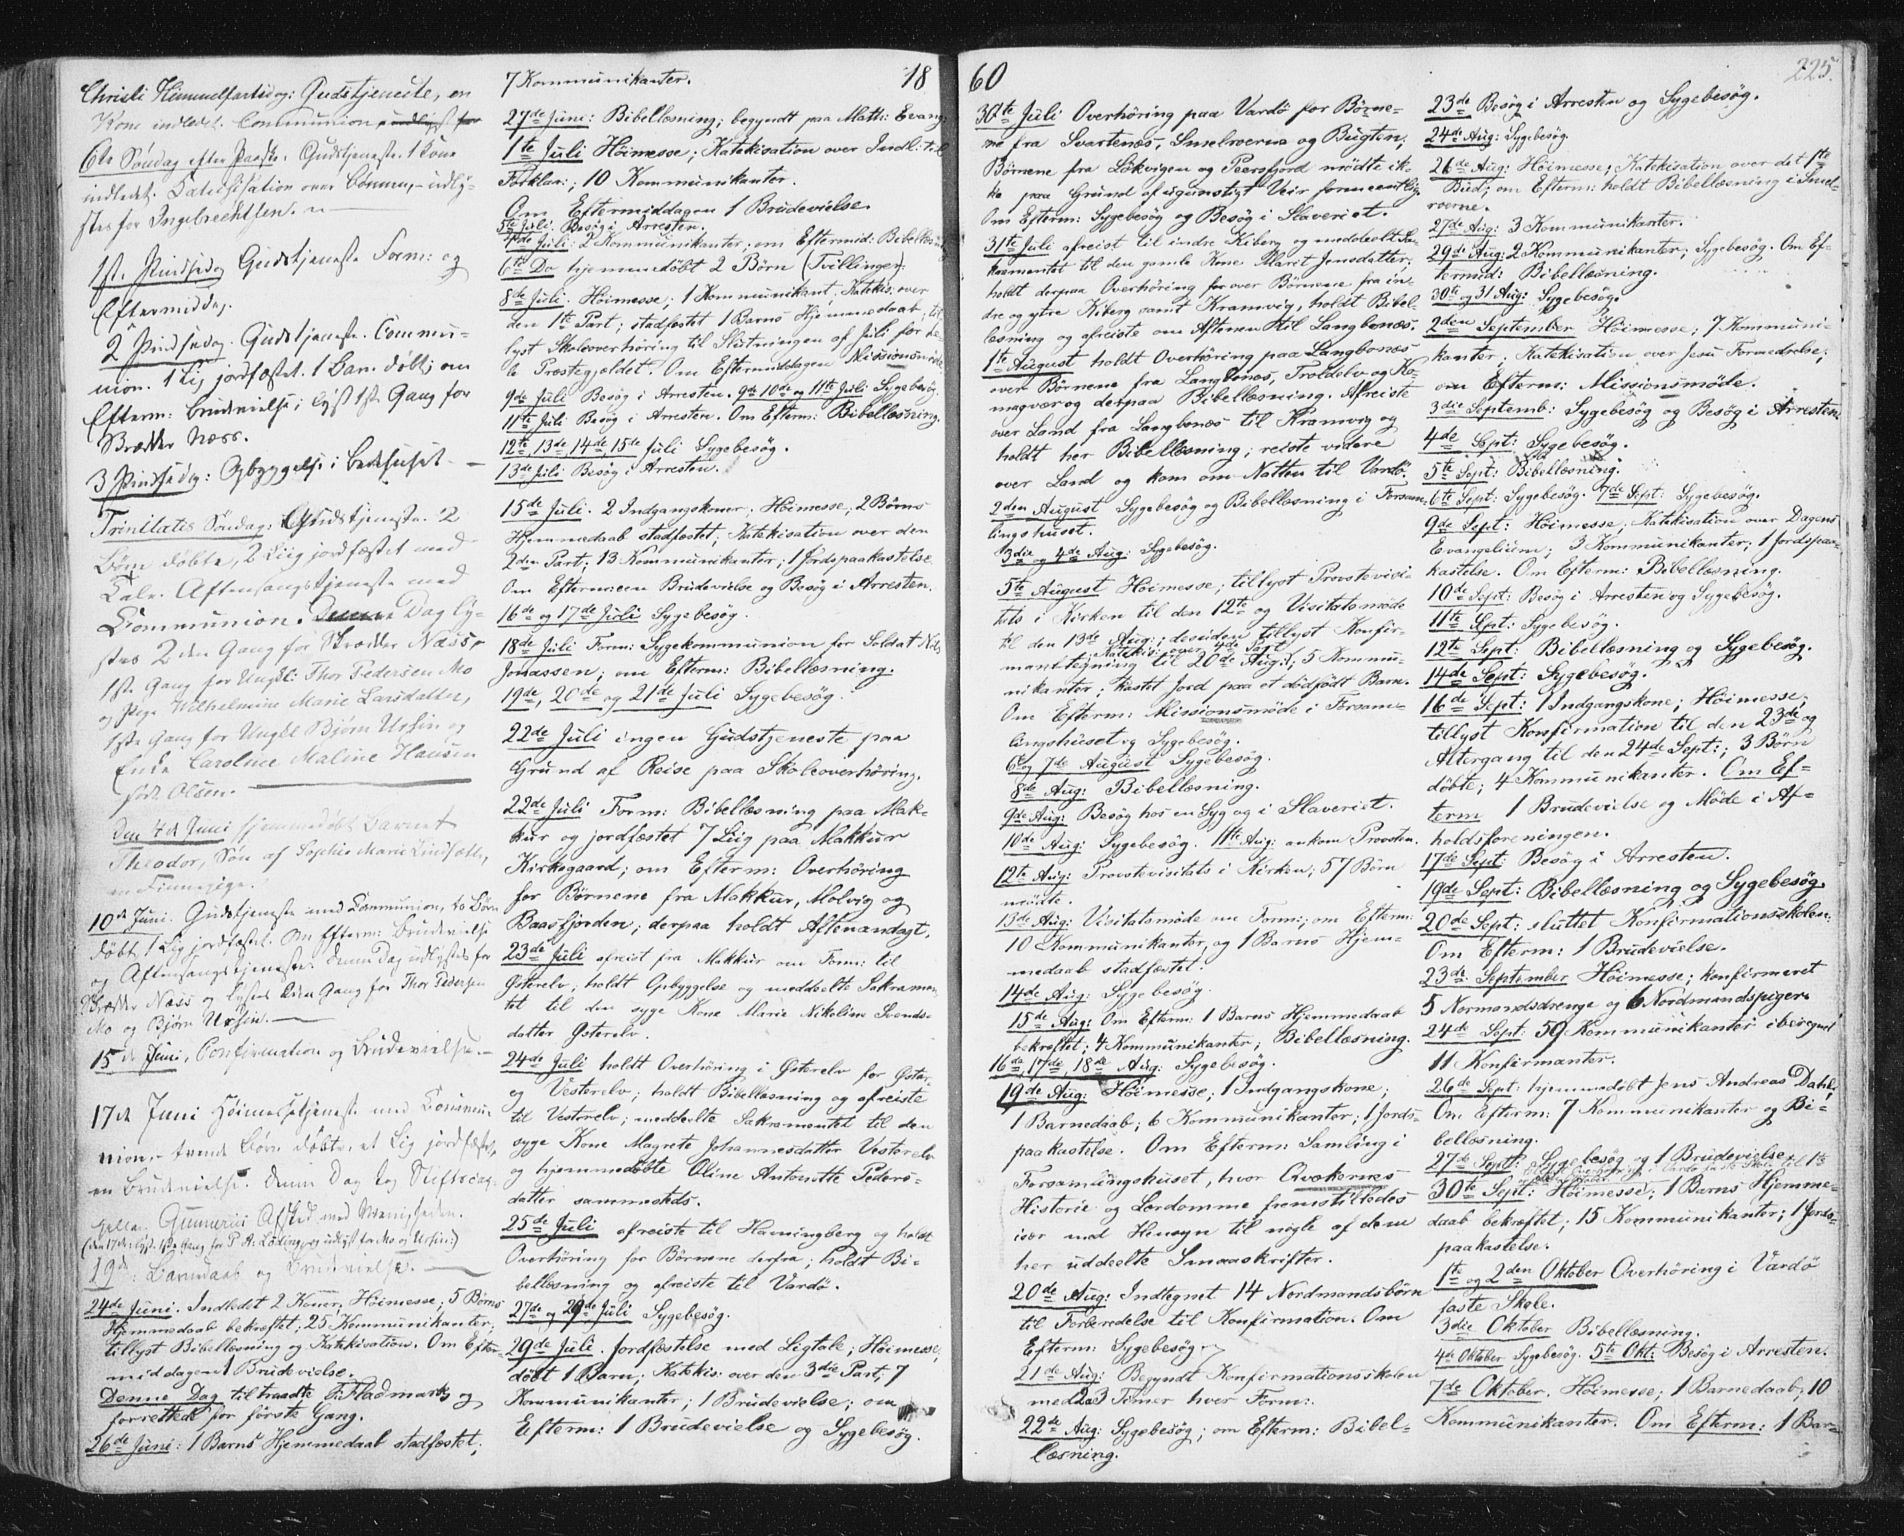 Christi Himmelfartsdag: Gudstjeneste, en
Kone indledet. Communion, udlyst for
6te Søndag efter Paaske. Gudstjeneste. 1 Kone
indledet. Catechisation over Bønnen, udly-
stes for Ingebrechtsen.
1ste Pindsedag Gudstjeneste Form: og
Eftermiddag.
2 Pindsedag. Gudstjeneste. Commu-
nion. 1 Lig jordfæstet. 1 Barn døbt; om
Efterm: Brudevielse; lyst 1ste Gang for
Skrædder Næss.
3 Pindsedag: Opbyggelse i Bedehuset.
Trinitatis Søndag: Gudstjeneste. 2
Børn døbte, 2 Liig jordfæstet med
Tale. Aftensangstjeneste med
Communion. Denne Dag ly-
stes 2den Gang for Skrædder Næss,
1ste Gang for Ungkl: Thor Pedersen Mo
og Pige Wilhelmine Marie Larsdatter,
1ste Gang for Ungkl Bjørn Ursin og
Enke Caroline Maline Hansen
født Olsen.
Den 4de Juni hjemmedøbt Barnet
Theodor, Søn af Sophie Marie
en Finnepige.
10de Juni. Gudstjeneste med Communion, to Børn
døbt, 1 Lig jordfæstet. Om Efterm: Brudevielse
og Aftensangstjeneste. Denne Dag udlystes for
Skrædder Næss og lystes 2den Gang for Thor Pedersen
Mo og Bjørn Ursin.
15de Juni, Confirmation og Brudevielse.
17de Juni Höimessetjeneste med Commu
nion, trende Børn døbte, et Lig jordfæstet,
en Brudevielse. Denne Dag tog Stiftscap-
pellan Gunnerus Afsked med Menigheden.
(den 17de lyst 1ste Gang for P. A. Löding og udlyst for Mo og Ursin)
19de: Barnedaab og Brudevielse.
24de Juni. Indledet 2 Koner, Höimesse; 5 Börns
Hjemmedaab bekræftet; 25 Kommunikanter;
tillyst Bibellæsning og Katekisation. Om Efter-
middagen 1 Brudevielse.
Denne Dag tiltraadte Fr. Hadmark og
forrettede for første Gang.
26de Juni: 1 Barns Hjemmedaab stadfæstet;
7 Kommunikanter. 18
27de Juni: Bibellæsning; begyndt paa Math: Evang.
1te Juli Höimesse; Katekisation over Indl: til
Forklar:; 10 Kommunikanter.
Om Eftermiddagen 1 Brudevielse.
5te Juli: Besög i Arresten.
4de Juli: 2 Kommunikanter; om Eftermid: Bibellæsning
6te Do hjemmedöbt 2 Börn (Tvillinger).
8de Juli. Höimesse; 1 Kommunikant, Katekis: over
den 1te Part; stadfæstet 1 Barns Hjemmedaab; til-
lyst Skoleoverhöring til Slutningen af Juli for he-
le Præstegjældet. Om Eftermiddagen Missionsmöde
9de Juli Besög i Arresten. 9de 10de og 11te Juli Sygebesög.
11te Juli Besög i Arresten. Om Efterm: Bibellæsning.
12te, 13de, 14de, 15de Juli Sygebesög.
13de Juli Besög i Arresten.
15de Juli. 2 Indgangskoner; Höimesse; 2 Börns
Hjemmedaab stadfæstet; Katekisation over den
2den Part; 13 Kommunikanter; 1 Jordspaakastelse.
Om Efterm: een Brudevielse og Besög i Arresten.
16de og 17de Juli Sygebesög.
18de Juli Form: Sygekommunion for Soldat Nils
Jonassen; om Efterm: Bibellæsning.
19de, 20de og 21de Juli Sygebesög.
22de Juli ingen Gudstjeneste paa
Grund af Reise paa Skoleoverhöring.
22de Juli Form: Bibellæsning paa Mak-
kur og jordfæstet 7 Liig paa Makkur
Kirkegaard; om Efterm: Overhöring
for Börnene fra Makkur, Molvig og
Baasfjorden; derpaa holdt Aftenandagt.
23de Juli afreist fra Makkur om Form: til
Østerelv; holdt Opbyggelse og meddeelte Sakramen-
tet til den syge Kone Marie Nikoline Svends-
datter Østerelv.
24de Juli holdt Overhöring i Østerelv for Øster
og Vesterelv; holdt Bibellæsning og afreiste
til Vesterelv; meddeelte Sakramentet til den
syge Kone Magrete Johannesdatter Vesterelv
og hjemmedöbte Oline Antonette Peders-
datter sammesteds.
25de Juli afreiste til Havningberg og holdt
Overhöring for Börnene derfra; holdt Bi-
bellæsning og afreiste til Vardö.
27de og 28de Juli Sygebesög.
29de Juli. Jordfæstelse med Ligtale; Höimesse;
döbt 1 Barn; Katekis: over den 3die Part; 7
Kommunikanter; 1 Brudevielse; om
Efterm: 1 Brudevielse og Sygebesög.
60 225.
30te Juli Overhöring paa Vardö for Börne-
ne fra Svartenæs, Smelroerne og Bugten;
Börnene fra Lökvigen og Peersfjord mödte ik-
ke paa Grund af ugunstigt Veir formeentlig.
Om Efterm: Sygebesög og Besög i Slaveriet.
31te Juli afreist til indre Kiberg og meddeelt Sa-
kramentet til den gamle Kone Marit Jensdatter;
holdt derpaa Overhöring for over Börnene fra in-
dre og ytre Kiberg samt Kramvig, holdt Bibel-
læsning og afreiste om Aftenen til Langbonæs.
1te August holdt Overhöring paa Langbonæs
over Börnene fra Langbonæs, Troldelv og Ko-
magvær og derpaa Bibellæsning. Afreiste
over Land fra Langbonæs til Kramvig og
holdt her Bibellæsning; reiste videre
over Land og kom om Natten til Vardö.
2den August Sygebesög og Bibellæsning i Forsam-
lingshuset.
3die og 4de Aug: Sygebesög.
5te August Höimesse; tillyst Provstevisi-
tats i Kirken til den 12te og Visitatsmöde
til den 13de Aug:; desuden tillyst Konfir-
Katekis: over 4de Part
manttegning til 20de Aug:; 5 Kommu-
nikanter; kastet Jord paa et dödfödt Barn.
Om Efterm: Missionsmöde i Forsam-
lingshuset og Sygebesög.
6te og 7de August Sygebesög.
8de Aug: Bibellæsning.
9de Aug: Besög hos en Syg og i Slaveriet.
10de Aug: Sygebesög. 11te Aug: ankom Provsten.
12te Aug: Provstevisitats i Kirken; 57 Börn
mödte.
13de Aug: Visitatsmöde om Form:; om Efterm:
10 Kommunikanter, og 1 Barns Hjem-
medaab stadfæstet.
14de Aug: Sygebesög.
15de Aug: Om Efterm: 1 Barns Hjemmedaab
bekræftet; 4 Kommunikanter; Bibellæsning.
16de, 17de, 18de Aug: Sygebesög.
19de Aug: Höimesse; 1 Indgangskone;
1 Barnedaab; 6 Kommunikanter; 1 Jords-
paakastelse. Om Efterm: Samling i
Forsamlingshuset, hvor Qvækernes
Historie og Lærdomme fremstilledes
især med Hensyn til nogle af dem
her uddeelte Smaaskrifter.
20de Aug: Indtegnet 14 Nordmandsbörn
til Forberedelse til Konfirmation. Om
Efterm: Sygebesög.
21de Aug: Begyndt Konfirmationsskolen
med 2 a 3 Timer hver Form:.
22de Aug: Sygebesög; om Efterm: Bibel-
læsning.
23de Besög i Arresten og Sygebesög.
24de Aug: Sygebesög.
26de Aug: Höimesse; Katekisation over det 1te
Bud; om Efterm: holdt Bibellæsning i Smel-
roerne.
27de Aug: 3 Kommunikanter.
29de Aug: 2 Kommunikanter; Sygebesög. Om Ef-
termid: Bibellæsning.
30te og 31 Aug: Sygebesög.
2den September Höimesse; 7 Kommuni-
kanter; Katekisation over Jesu Fornedrelse;
om Efterm: Missionsmöde.
3die Septemb: Sygebesög og Besög i Arresten.
4de Sept: Sygebesög.
5te Sept: Bibellæsning.
6te Sept: Sygebesög. 7de Sept: Sygebesög.
9de Sept: Höimesse; Katekisation over Dagens
Evangelium; 3 Kommunikanter; 1 Jordspaa-
kastelse. Om Efterm: Bibellæsning.
10de Sept: Besög i Arresten og Sygebesög.
11te Sept: Sygebesög.
12te Sept: Bibellæsning og Sygebesög.
14de Sept: Sygebesög.
16de Sept: 1 Indgangskone; Höimesse;
tillyst Konfirmation til den 23de og
Altergang til den 24de Sept:; 3 Börn
döbte; 4 Kommunikanter. Om Ef-
term 1 Brudevielse og Möde i Af-
holdsforeningen.
17de Sept: Besög i Arresten.
19de Sept: Bibellæsning og Sygebesög.
20de Sept: sluttet Konfirmationsskolen.
Om Efterm: 1 Brudevielse.
23de September Höimesse; konfirmeret
5 Normandsdrenge og 6 Nordmandspiger.
24de Sept: 59 Kommunikanter iberegnet
11 Konfirmanter.
26de Sept: hjemmedöbt Jens Andreas Dahl;
Om Efterm: 7 Kommunikanter og Bi-
bellæsning.
27de Sept: Sygebesög og 1 Brudevielse.
Overhöring i Vardö faste Skole til 1te
30te Sept: Höimesse; 1 Barns Hjemme-
daab bekræftet; 15 Kommunikanter; 1 Jords-
paakastelse.
1te og 2den Oktober Overhöring i Vardö
faste Skole.
3die Oktober Bibellæsning.
4de Oktober Sygebesög. 5te Okt: Besög i Arresten.
7de Oktober. Höimesse; 1 Barnedaab; 10
Kommunikanter. Om Efterm: 1 Bar-